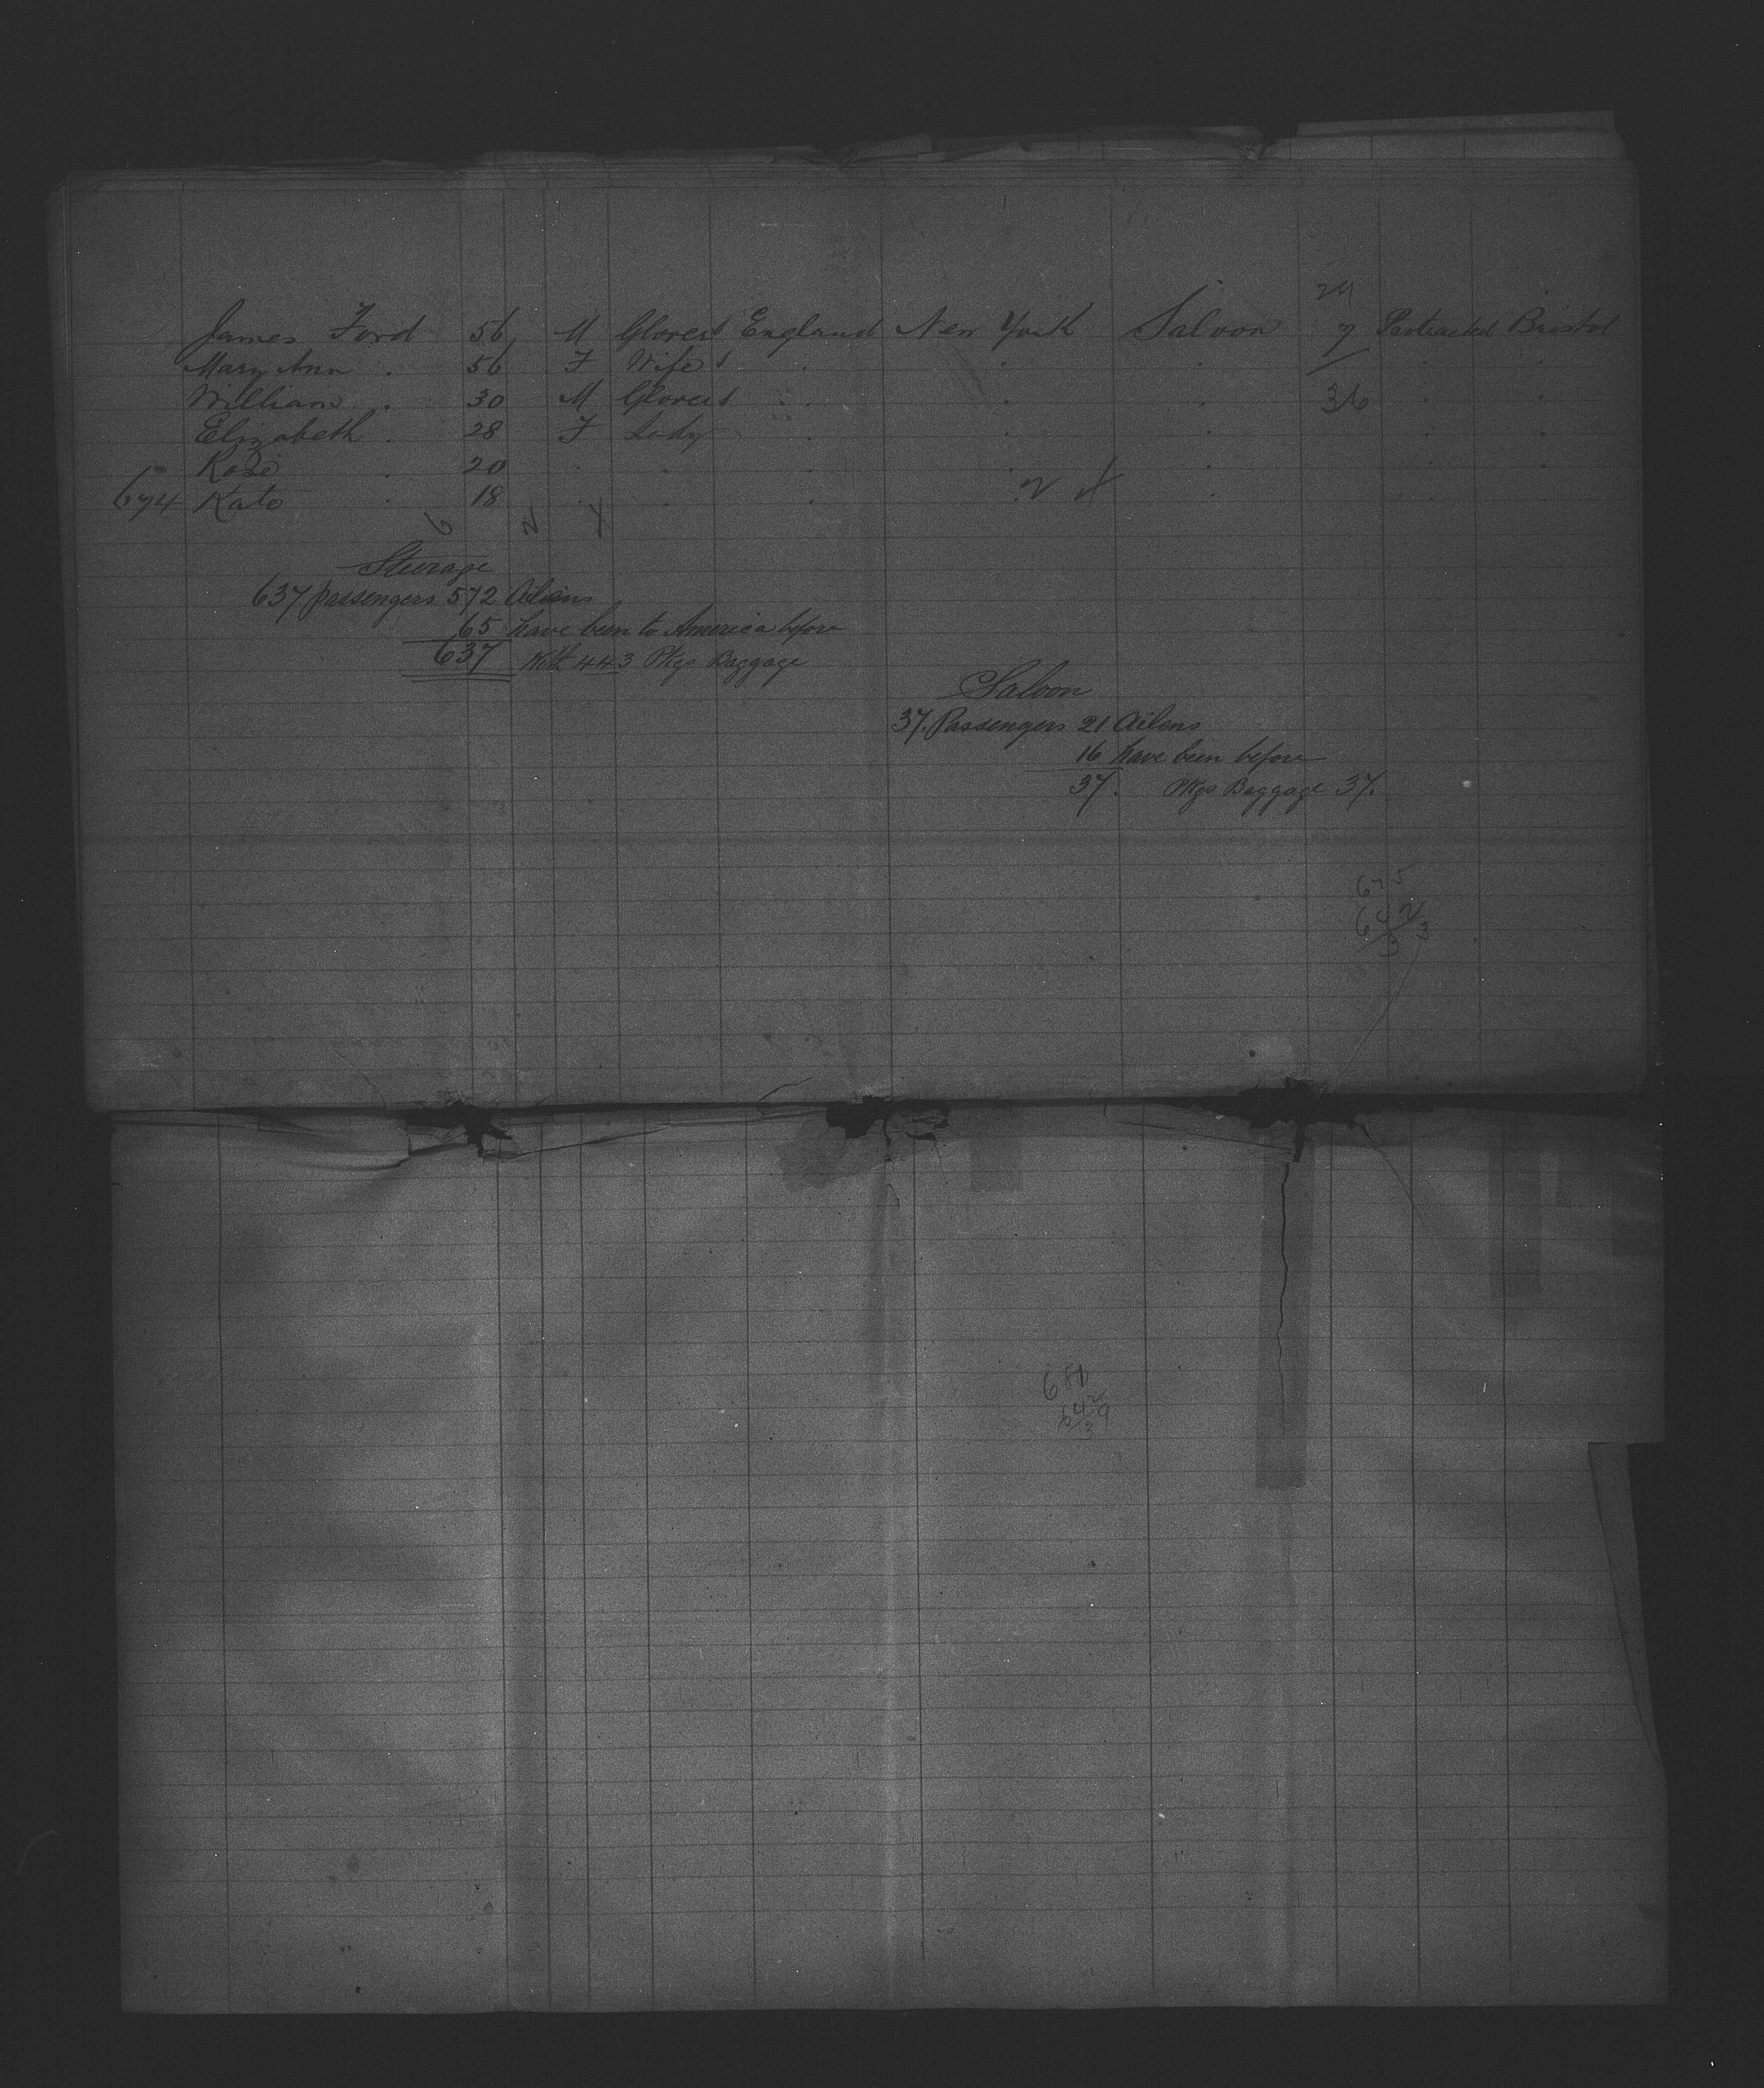 24
James Ford 56 M Glover England New York Saloon 7 Protracted Bristol
Mary Ann . 56 F Wife . . . . .
William . 30 M Glover . . . 36 . .
Elizabeth . 28 F Lady . . . . .
Rose . 20 . . . . . . .
674 Kate . 18 . . . . . .
6
Steerage
637 passengers 572 Ailiens
65 have been to America before
637 With 443 Pkgs Baggage
Saloon
37. Passengers 21 Ailens
16 have been before
37. Pkgs Baggage 37.
675
642
33
681
642
39